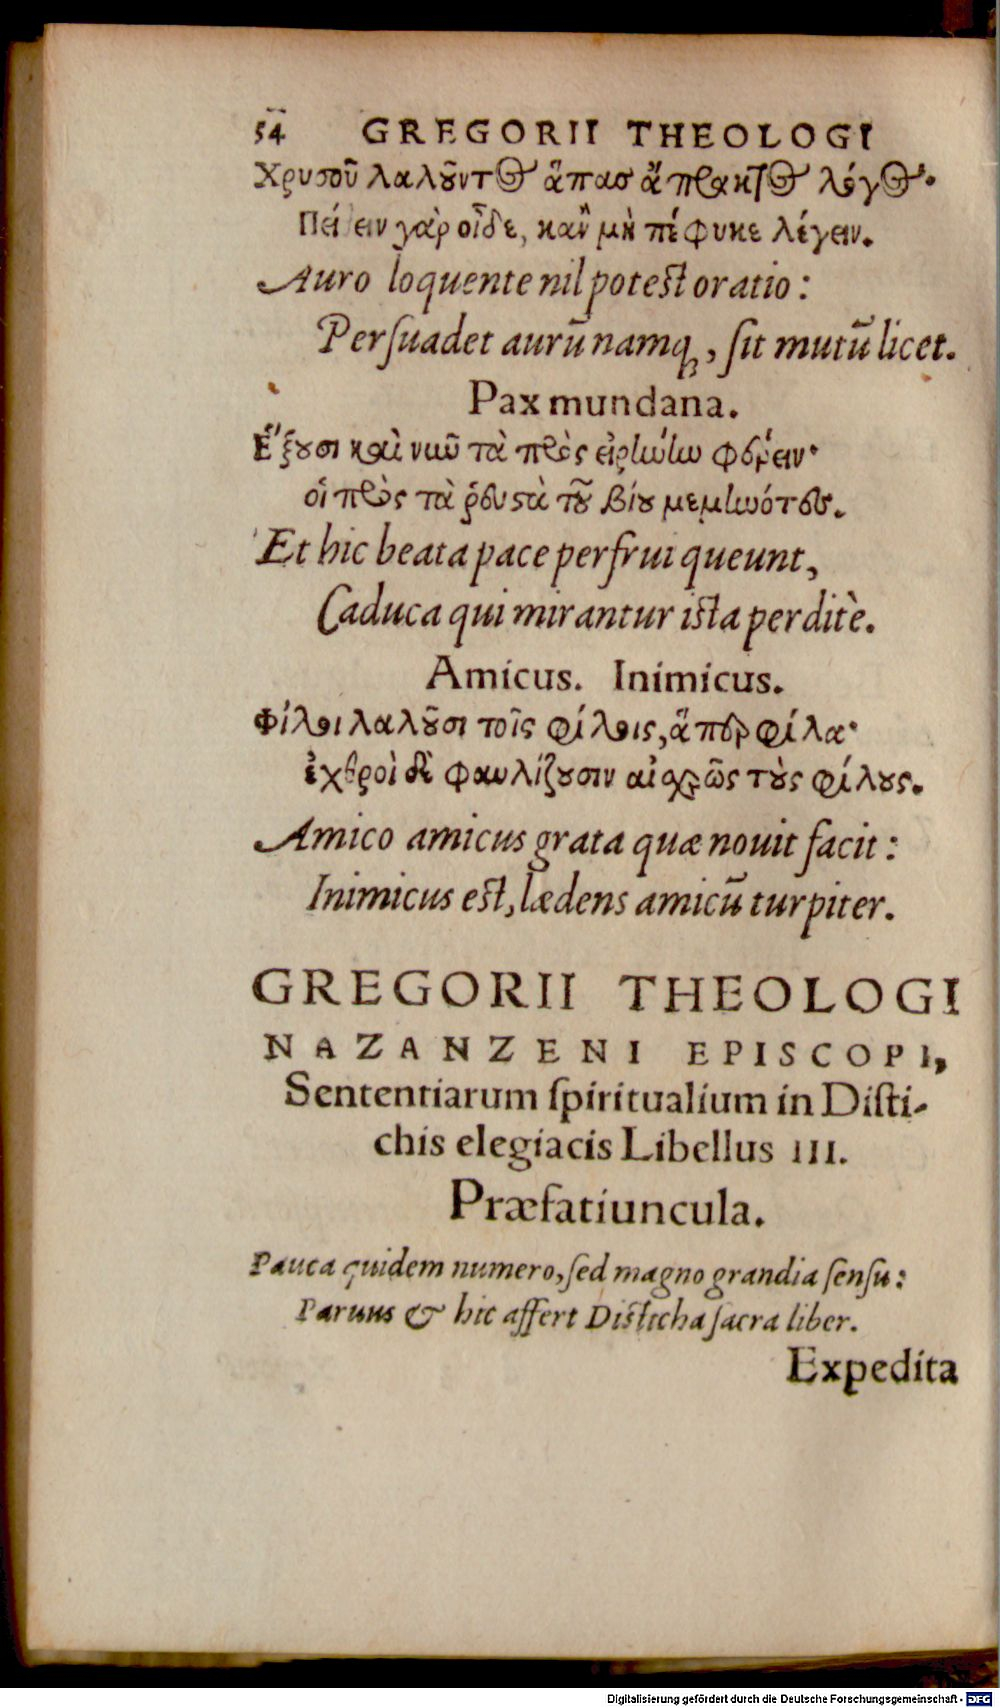 54 GREGORII THEOLOGI
Χρυσοῦ λαλοῦντος ἅπας ἄπρακτος λόγος·
Πείθειν γὰρ οἶδε, κἂν μὴ πέφυκε λέγειν.
Auro loquente nil potest oratio:
Persuadet aurũ namq;, sit mutũ licet.
Pax mundana.
Ἕξουσι καὶ νῦν τὰ πρὸς εἰρήνην φέρειν·
οἱ πρὸς τὰ ῥευστὰ τοῦ βίου μεμηνότες.
Et hic beata pace perfrui queunt,
Caduca qui mirantur ista perditè.
Amicus. Inimicus.
Φίλοι λαλοῦσι τοῖς φίλοις, ἅπερ φίλα·
ἐχθροὶ δὲ φαυλίζουσιν αἰσχρῶς τοὺς φίλους.
Amico amicus grata quæ nouit facit:
Inimicus est, lædens amicũ turpiter.
GREGORII THEOLOGI
NAZANZENI EPISCOPI,
Sententiarum ſpiritualium in Diſti-
chis elegiacis Libellus III.
Præfatiuncula.
Pauca quidem numero, ſed magno grandia ſenſu:
Paruus & hic affert Disticha ſacra liber.
Expedita
Digitalisierung gefördert durch die Deutsche Forschungsgemeinschaft - DFG